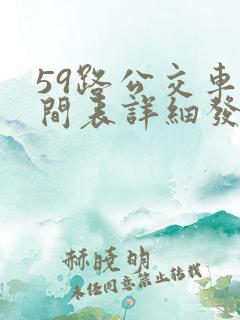 59路公交車
間表詳細發
赫曉明
未经同意禁止转载